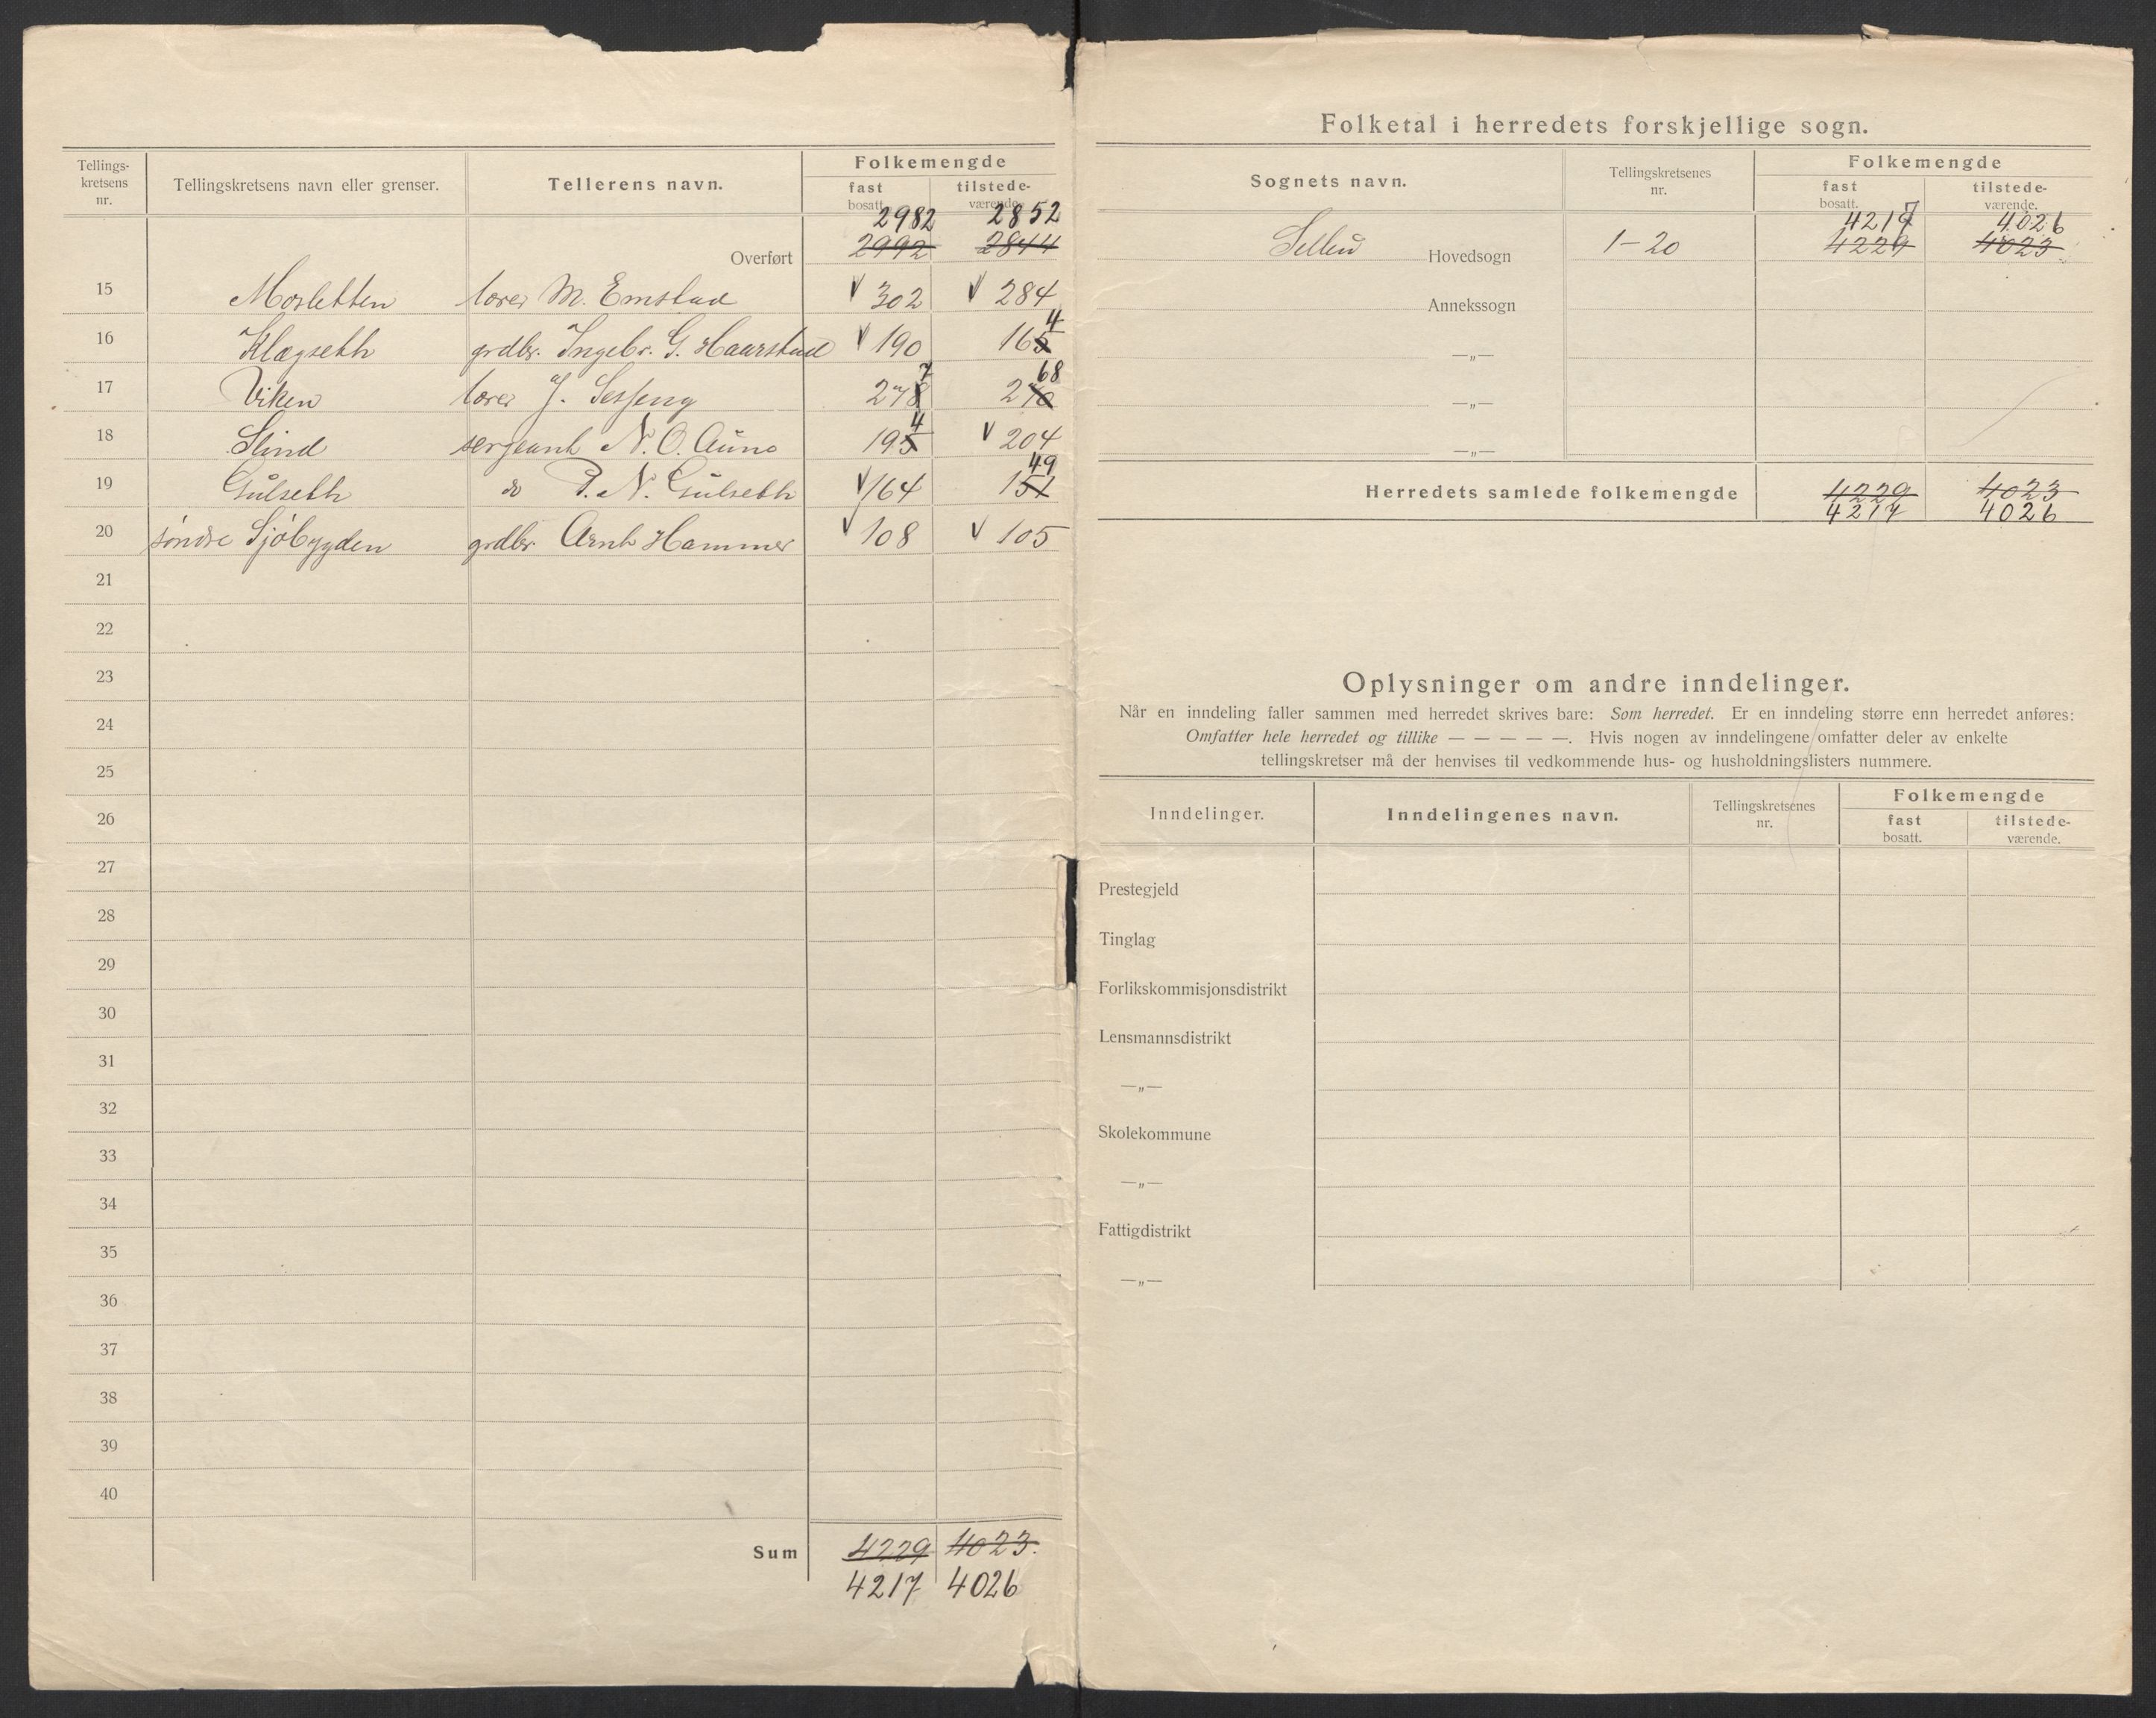 Tellings-kretsens nr. Tellingskretsens navn eller grenser. Tellerens navn. Folkemengde
fast bosatt. tilstede-værende.
2982 2852
Overført 2992 2844
15 Mosletten lærer M. Emstad V 302 V 284
16 Klægseth grdbr. Ingebr. G. Haarstad V 190 165 4
17 Viken lærer J. Sesseng 278 7 270 68
18 Slind sergeant N. O. Auno 195 4 V 204
19 Gulseth do P. N. Gulseth V 164 151 49
20 søndre Sjöbygden grdbr. Arnt Hammer V 108 V 105
21
22
23
24
25
26
27
28
29
30
31
32
33
34
35
36
37
38
39
40
Sum 4229 4023.
4217 4026
Folketal i herredets forskjellige sogn.
Sognets navn. Tellingskretsenes nr. Folkemengde
fast bosatt. tilstede-værende.
4217 4026
Selbu Hovedsogn 1-20 4229 4023
Annekssogn
—„—
—„—
—„—
Herredets samlede folkemengde 4229 4023
4217 4026
Oplysninger om andre inndelinger.
Når en inndeling faller sammen med herredet skrives bare: Som herredet. Er en inndeling større enn herredet anføres:
Omfatter hele herredet og tillike — — — — —. Hvis nogen av inndelingene omfatter deler av enkelte
tellingskretser må der henvises til vedkommende hus- og husholdningslisters nummere.
Inndelinger. Inndelingenes navn. Tellingskretsenes nr. Folkemengde
fast bosatt. tilstede-værende.
Prestegjeld
Tinglag
Forlikskommisjonsdistrikt
Lensmannsdistrikt
—„—
Skolekommune
—„—
Fattigdistrikt
—„—